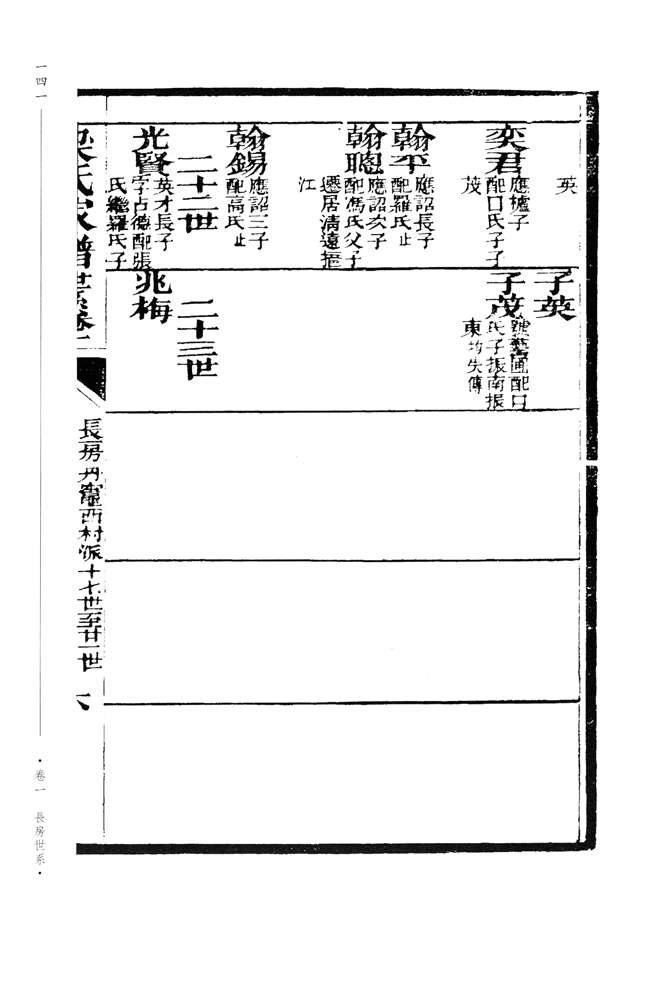 英
奕君
應櫨子
配口氏子子
茂
翰平
應詔長子
配羅氏止
翰聰
應詔次子
配馮氏父子
遷居清遠搖
江
翰錫
應詔三子
配高氏止
二十二世
光賢
英才長子
字占德配張
氏繼羅氏子
子英
子茂
號藝圃配口
氏子振南振
東均失傳
二十三世
兆梅
氏家譜
長房丹竈西村派十七世至廿一世
六
一四一
·卷一 長房世系·